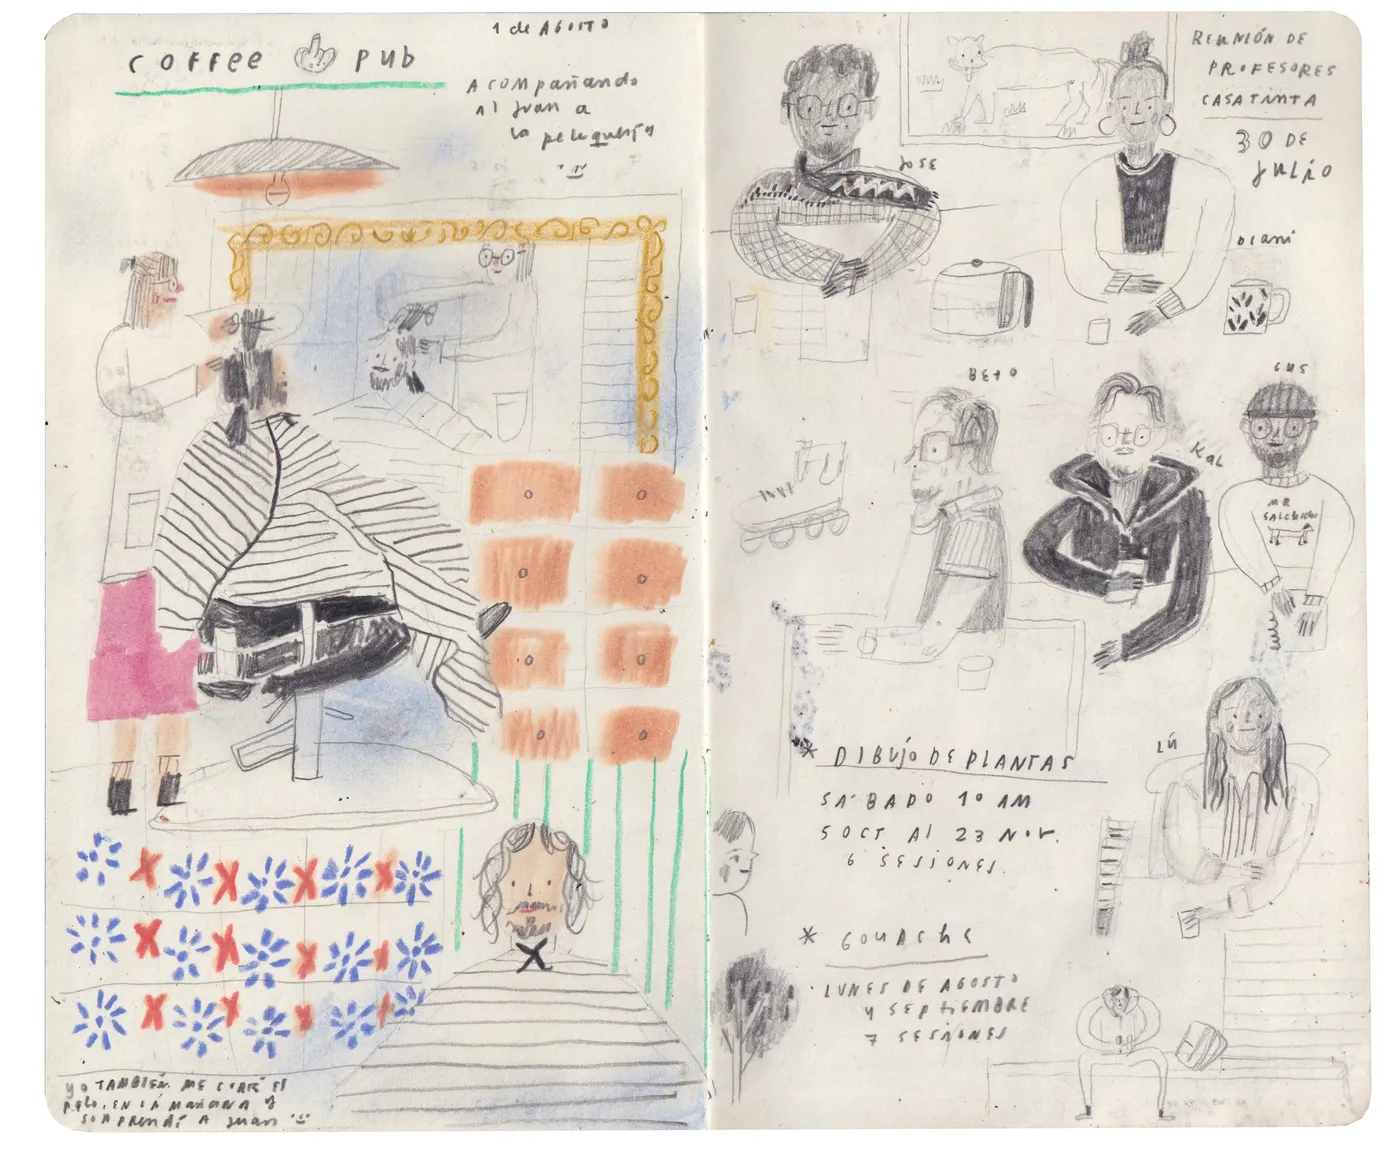 COFFEE PUB
1 de AGOSTO
ACOMPAÑANDO
AL JUAN A
LA peluquería
YO TAMBIÉN ME CORTÉ EL
PELO, EN LA MAÑANA Y
SORPRENDÍ A JUAN
REUNIÓN DE
PROFESORES
CASATINTA
30 DE
JULIO
JOSE
DIANI
BETO
KAL
GUS
MR
SALCHICHA
LÚ
* DIBUJO DE PLANTAS
SÁBADO 10 AM
5 OCT AL 23 NOV.
6 SESIONES.
* GOUACHE
LUNES DE AGOSTO
Y SEPTIEMBRE
7 SESIONES